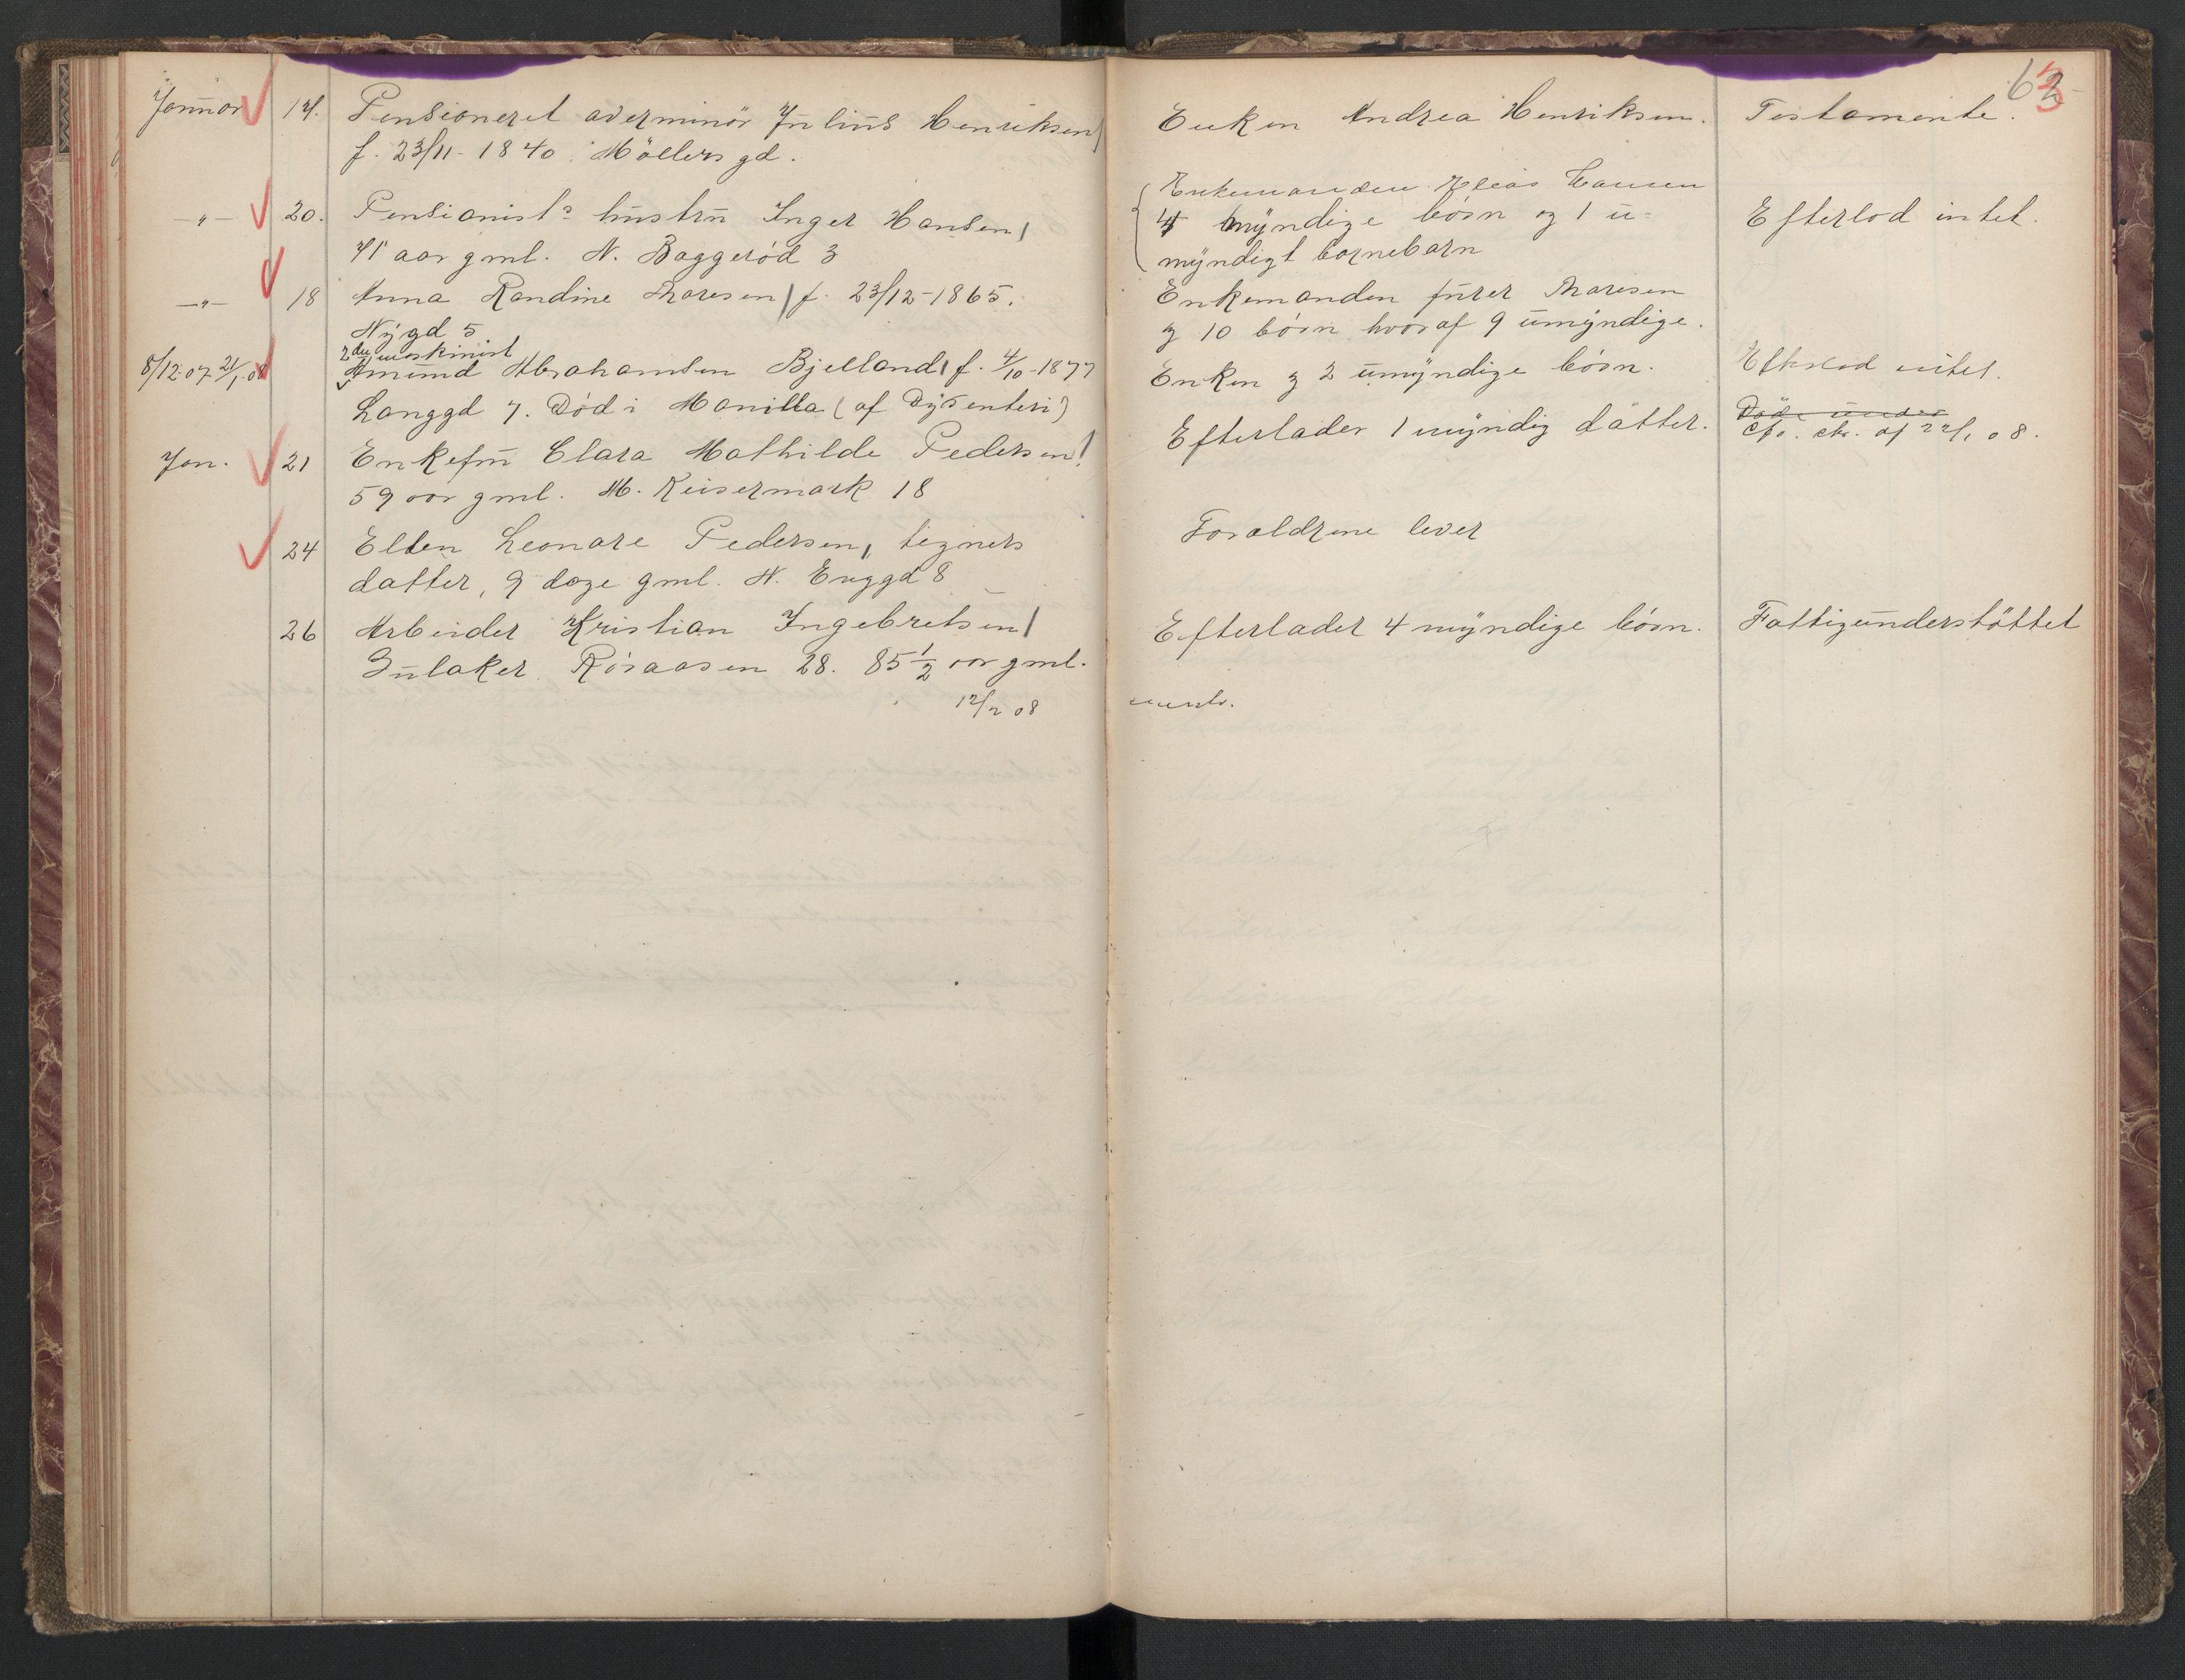 Januar 14. Pensioneret overminör Julius Henriksen Enken Andrea Henriksen. Testamente. 62
f. 23/11-1840. Möllersgd.
Enkemanden Elias Hansen
—"— 20. Pensionists hustru Inger Hansen 4 myndige börn og 1 u- Efterlod intet.
71 aar gml. N. Baggeröd 3 myndigt barnebarn
—"— 18 Anna Randine Thoresen f. 23/12-1865. Enkemanden fürer Thoresen
Nygd 5 og 10 börn hvoraf 9 umyndige.
2den maskinist
8/12-07 21/1-08 Amund Abrahamsen Bjelland f. 4/10-1877 Enken og 2 umyndige börn. Efterlod intet.
Langgd 7. Död i Manilla (af Dysenteri)
Jan. 21 Enkefru Clara Mathilde Pedersen Efterlader 1 myndig datter. Cfr. skr. af 22/1 08.
59 aar gml. M. Keisermark 18
24 Ellen Leonore Pedersen, tegners Foraldrene lever
datter, 9 dage gml. N. Enggd 8
26 Arbeider Kristian Ingebretsen Efterlader 4 myndige börn. Fattigunderstöttet
Gulaker Röraasen 28. 85 1/2 aar gml.
12/2 08